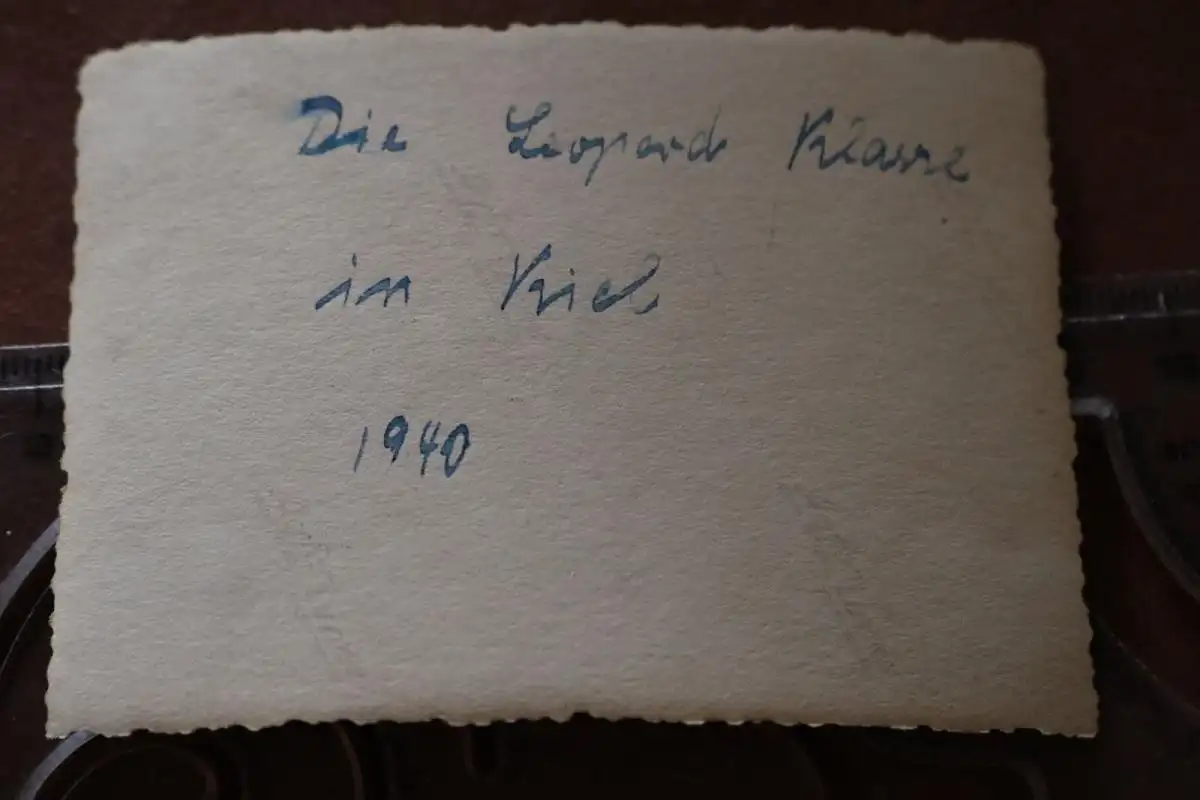 Die Leopard Klasse
in Kiel
1940